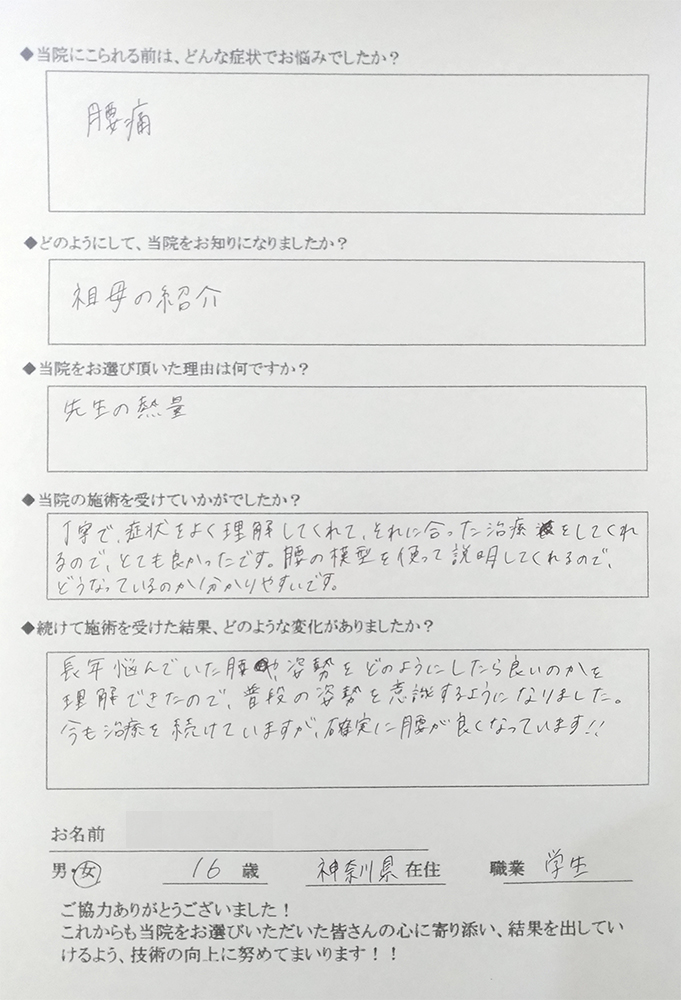 ◆当院にこられる前は、どんな症状でお悩みでしたか？
腰痛
◆どのようにして、当院をお知りになりましたか？
祖母の紹介
◆当院をお選び頂いた理由は何ですか？
先生の熱量
◆当院の施術を受けていかがでしたか？
丁寧で、症状をよく理解してくれて、それに合った治療をしてくれ
るので、とても良かったです。腰の模型を使って説明してくれるので、
どうなっているのか分かりやすいです。
◆続けて施術を受けた結果、どのような変化がありましたか？
長年悩んでいた腰や、姿勢をどのようにしたら良いのかを
理解できたので、普段の姿勢を意識するようになりました。
今も治療を続けていますが、確実に腰が良くなっています!!
お名前
男・女 16 歳 神奈川県 在住 職業 学生
ご協力ありがとうございました！
これからも当院をお選びいただいた皆さんの心に寄り添い、結果を出してい
けるよう、技術の向上に努めてまいります！！